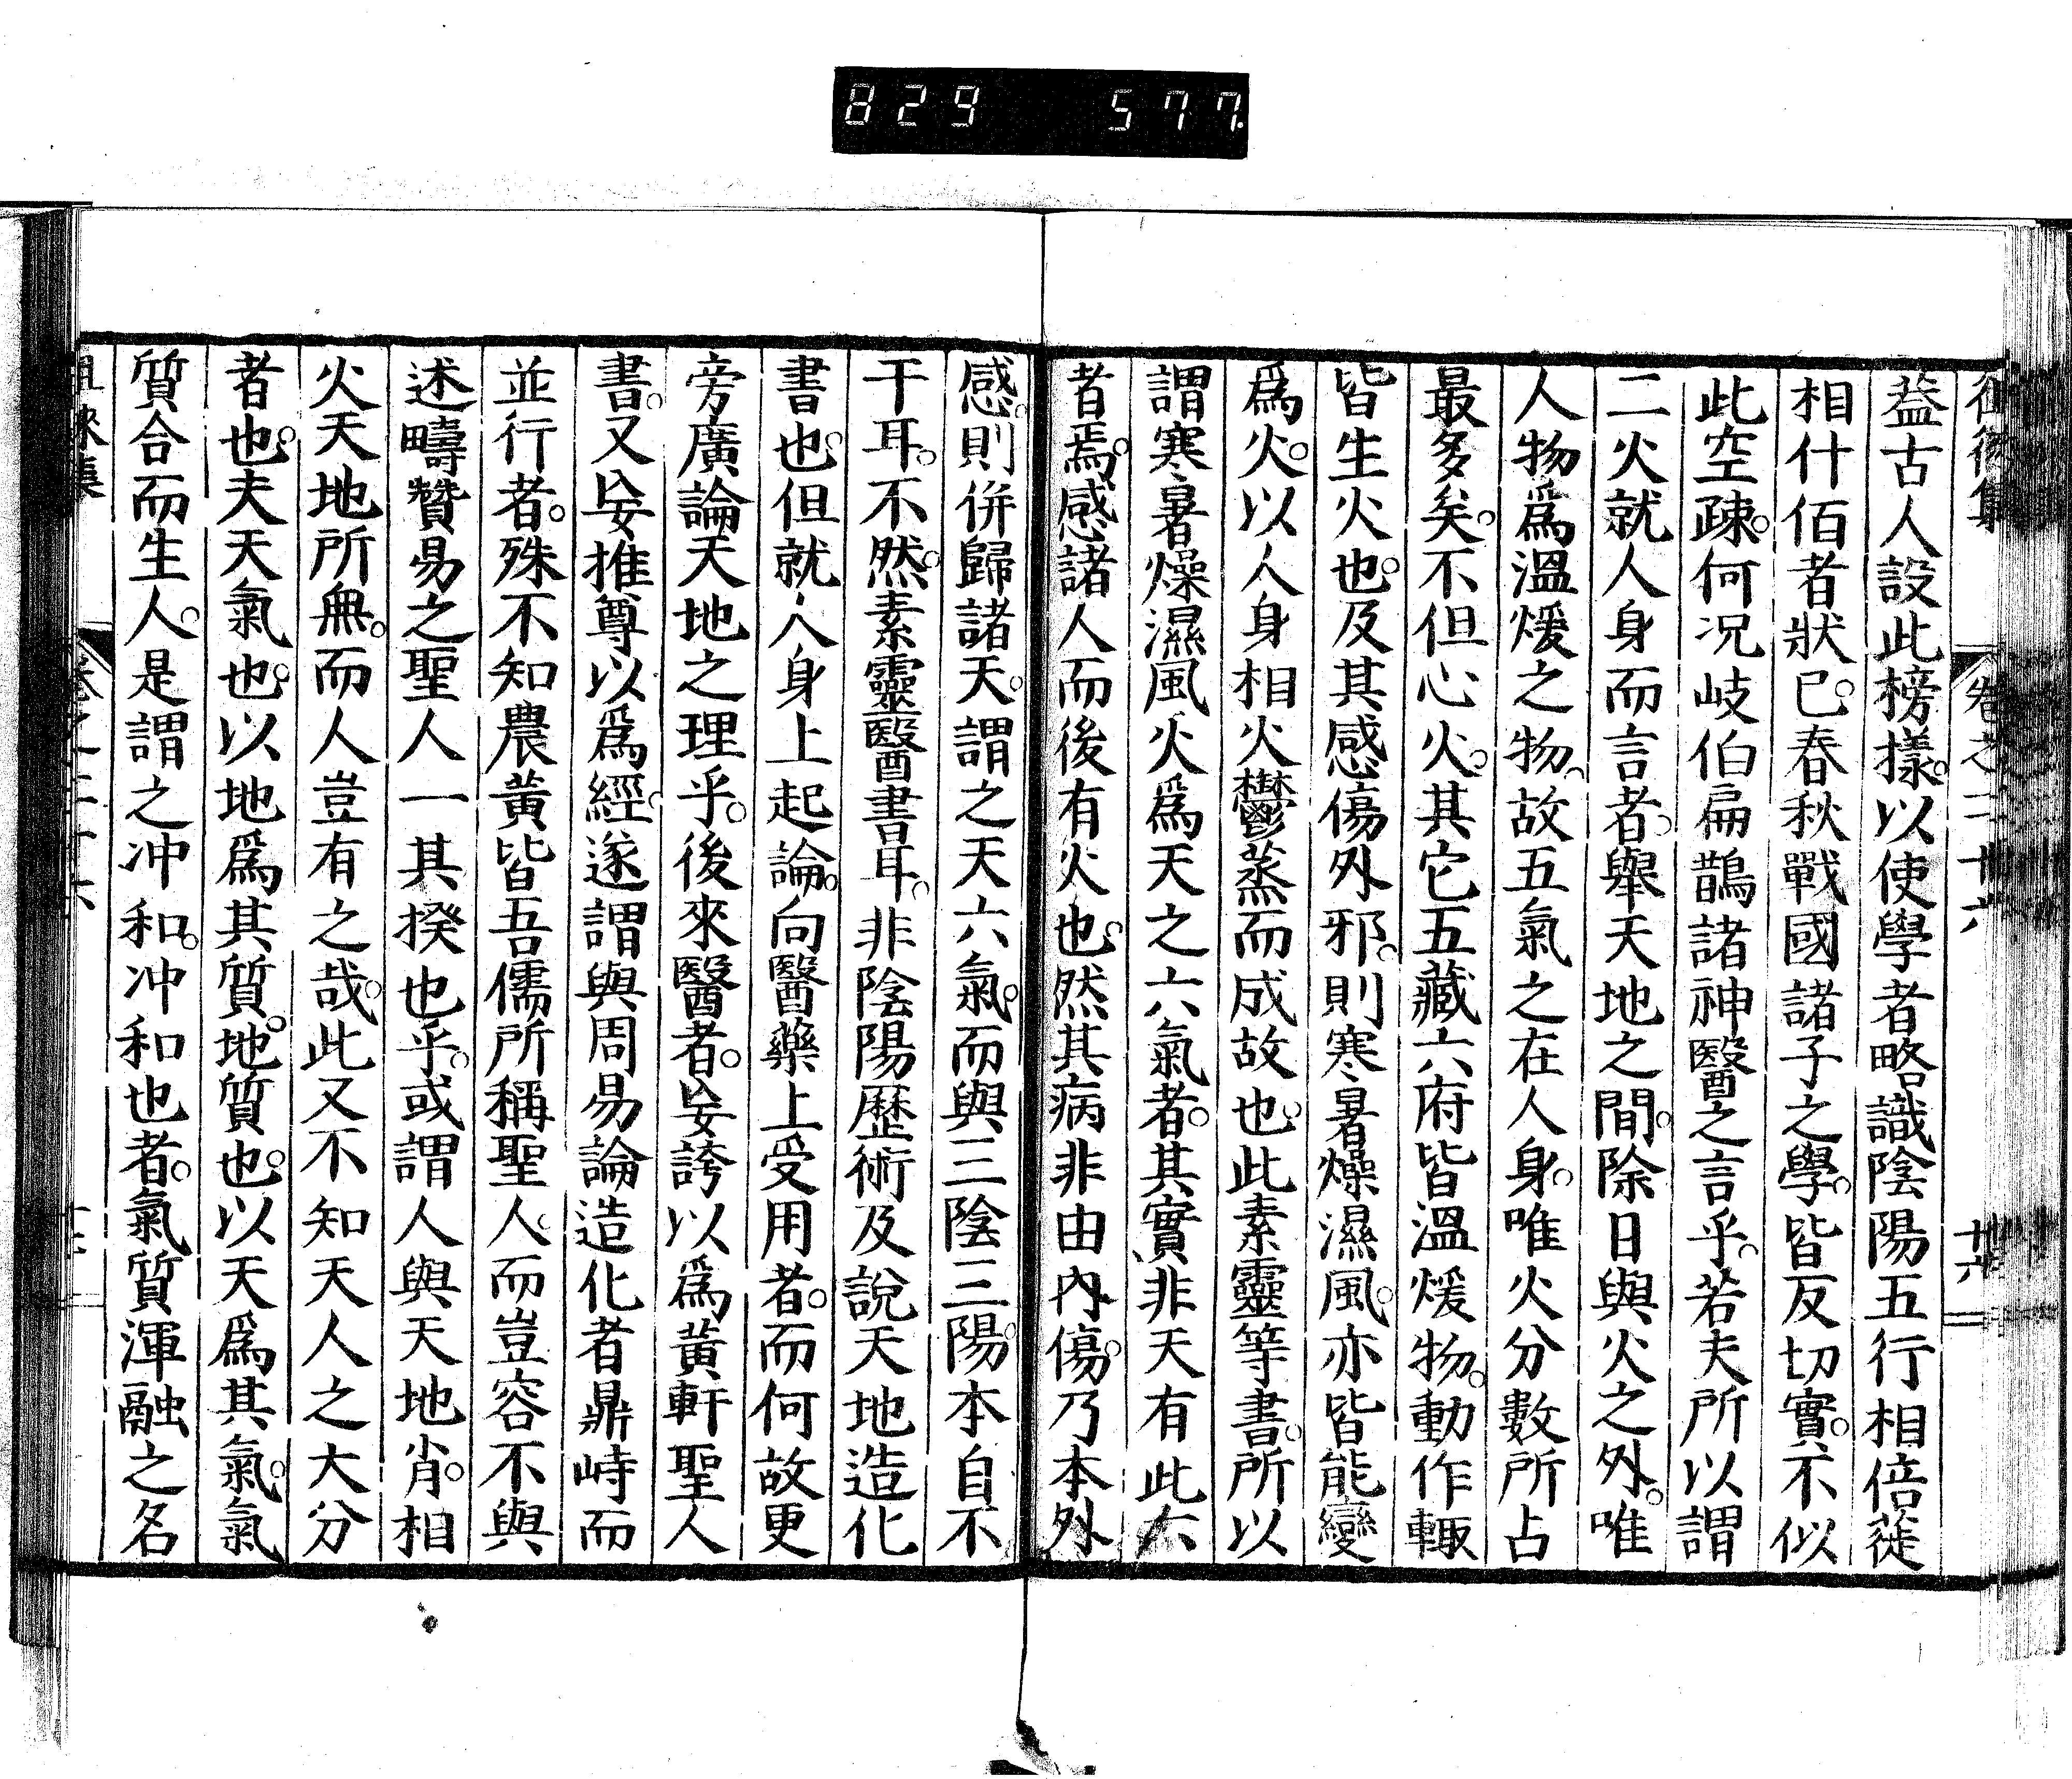 829 577
卷之二十六 十六
葢古人設此榜樣。以使學者略識陰陽五行相倍蓰
相什佰者狀已。春秋戰國諸子之學。皆反切實。不似
此空疎。何況岐伯扁鵲諸神醫之言乎。若夫所以謂
二火就人身而言者。舉天地之間。除日與火之外。唯
人物爲溫煖之物。故五氣之在人身。唯火分數所占
最多矣。不但心火。其它五藏六府皆溫煖物。動作輙
皆生火也。及其感傷外邪。則寒暑燥濕風。亦皆能變
爲火。以人身相火鬱蒸而成故也。此素靈等書。所以
謂寒暑燥濕風火爲天之六氣者。其實非天有此六
者焉。感諸人而後有火也。然其病非由內傷。乃本外
感。則併歸諸天。謂之天六氣。而與三陰三陽。本自不
干耳。不然。素靈醫書耳。非陰陽歷術及說天地造化
書也。但就人身上起論。向醫藥上受用者。而何故更
旁廣論天地之理乎。後來醫者。妄誇以爲黃軒聖人
書。又妄推尊以爲經。遂謂與周易論造化者鼎峙而
並行者。殊不知農黃皆吾儒所稱聖人。而豈容不與
述疇贊易之聖人一其揆也乎。或謂人與天地肖。相
火天地所無。而人豈有之哉。此又不知天人之大分
者也。夫天氣也。以地爲其質。地質也。以天爲其氣。氣
質合而生人。是謂之冲和。冲和也者。氣質渾融之名
徠集 卷之二十六